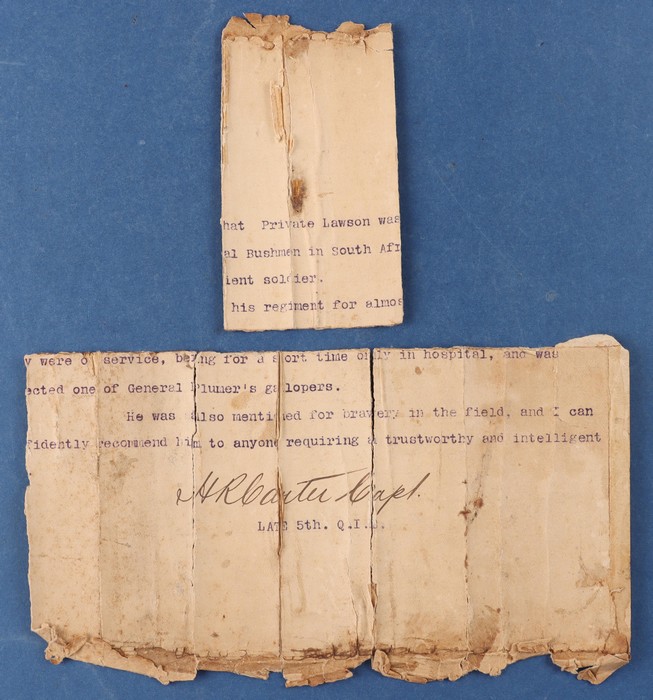 hat Private Lawson was
al Bushmen in South Afr
ient soldier.
his regiment for almos
y were o service, being for a s ort time only in hospital, and was
ected one of General Plumer's ga lopers.
He was also menti ned for bravery in the field, and I can
fidently recommend him to anyone requiring a trustworthy and intelligent
H R Carter Capt.
LATE 5th. Q.I.B.